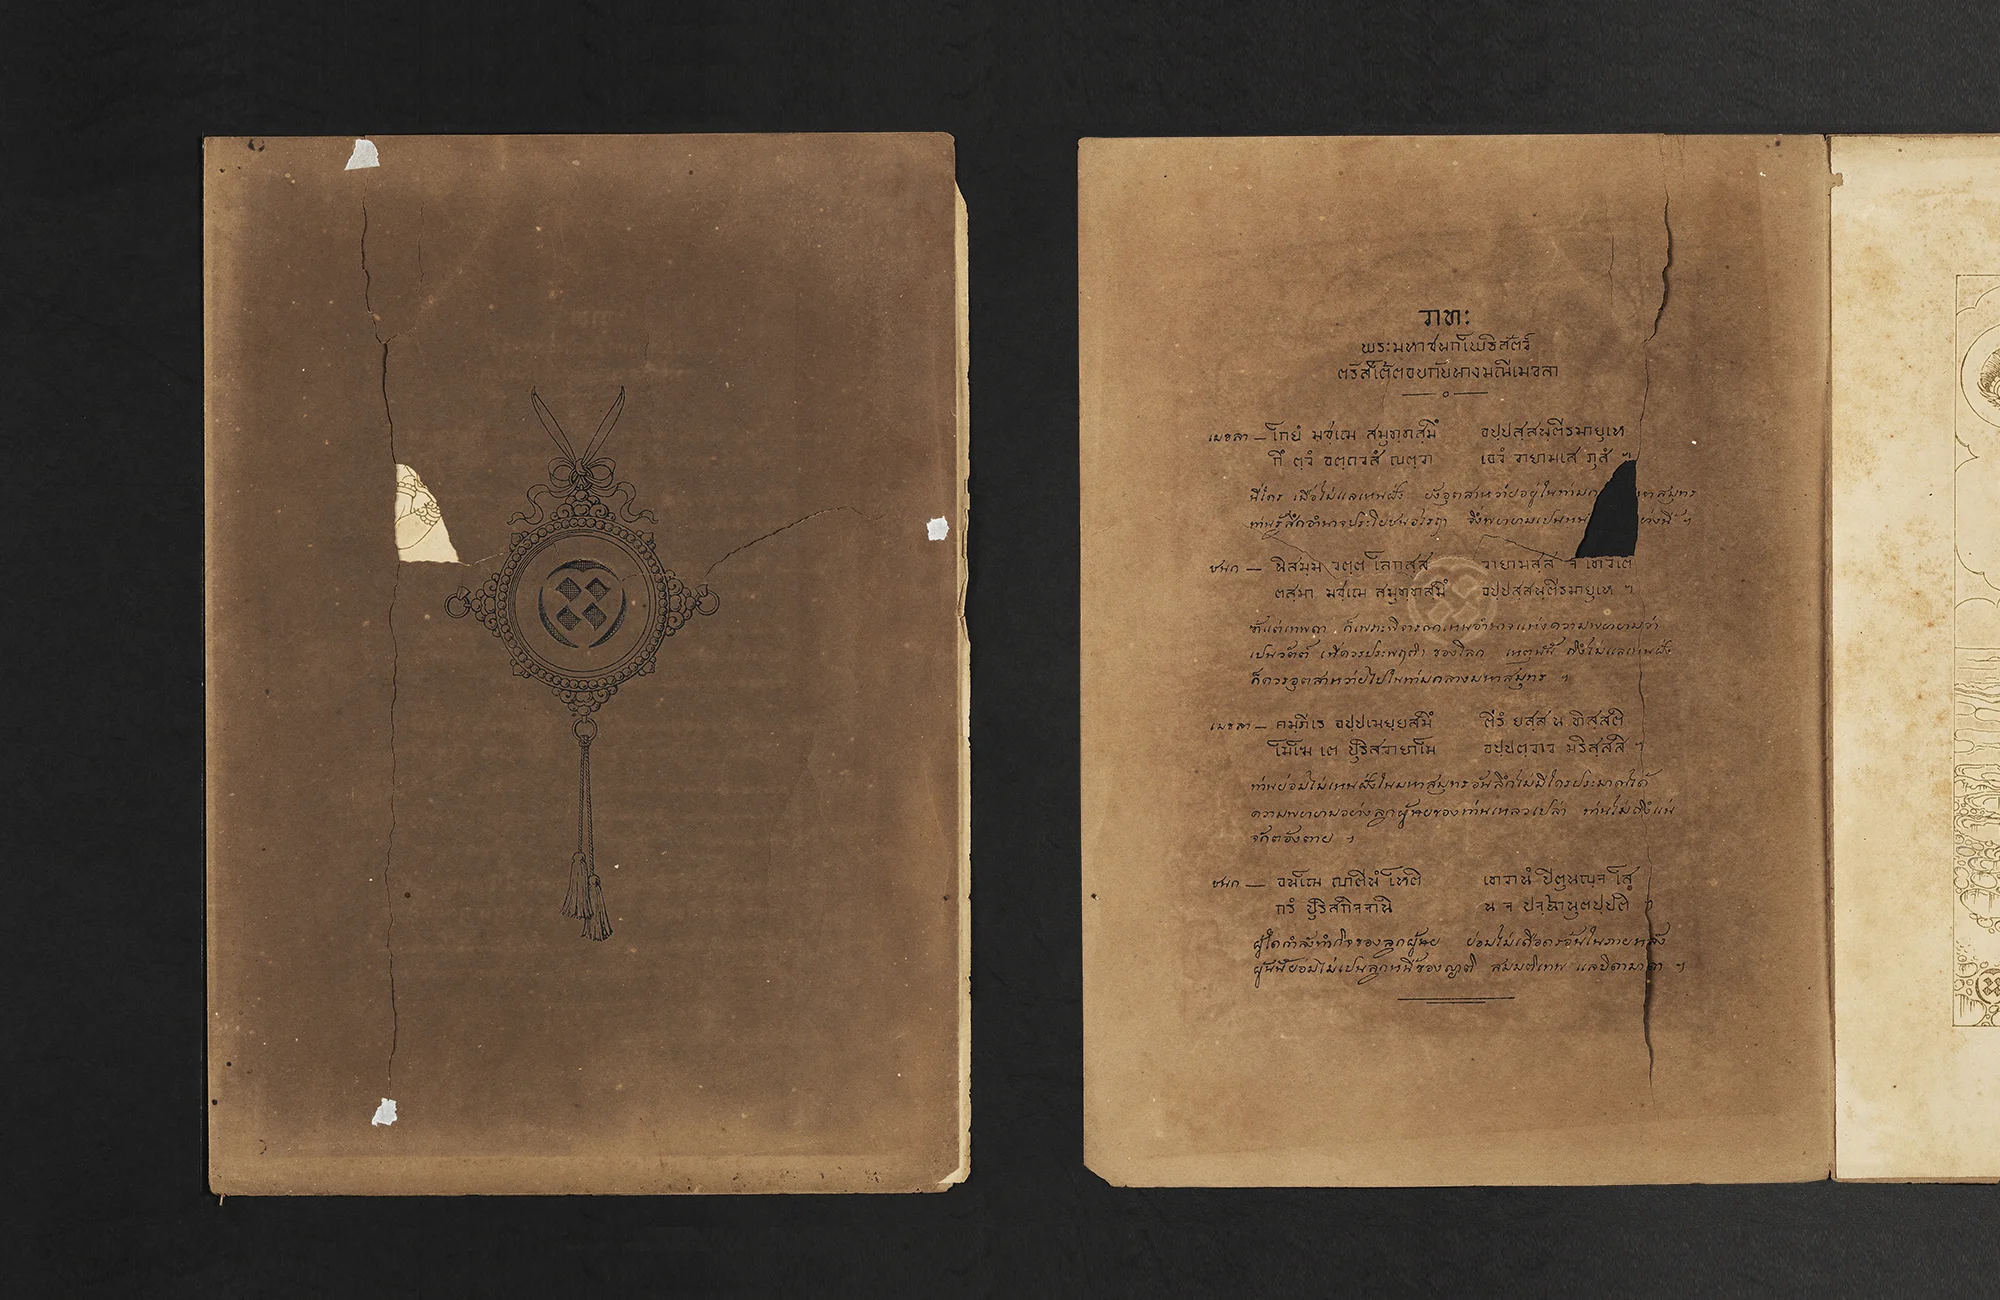 วาทะ
พระมหาชนกโพธิสัตว์
ตรัสโต้ตอบกับนางมณีเมขลา
เมขลา — โกยํ มชฺเฌ สมุทฺทสฺมึ อปฺปสฺสนฺตีรมายุเห
กึ ตฺวํ อตฺถวสํ ญตฺวา เอวํ วายามเส ภุสํ ฯ
นี่ใคร เมื่อไม่แลเห็นฝั่ง ยังอุตสาหว่ายอยู่ในท่ามก หาสมุทร
ท่านรู้สึกอำนาจประโยชน์อะไรฤๅ จึ่งพยายามเปนหน ย่างนี้ ฯ
ชนก — นิสมฺม วตฺตํ โลกสฺส วายามสฺส จ เทวเต
ตสฺมา มชฺเฌ สมุทฺทสฺมึ อปฺปสฺสนฺตีรมายุเห ฯ
ข้าแต่เทพดา ก็เพราะพิจารณาเห็นอำนาจแห่งความพยายามว่า
เปนวัตต์ เพื่อควรประพฤติ์ ของโลก เหตุนี้ ถึงไม่แลเห็นฝั่ง
ก็ควรอุตสาหว่ายไปในท่ามกลางมหาสมุทร ฯ
เมขลา — คมฺภีเร อปฺปเมยฺยสฺมึ ตีรํ ยสฺส น ทิสฺสติ
โมโฆ เต ปุริสวายาโม อปฺปตฺวาว มริสฺสสิ ฯ
ท่านย่อมไม่เห็นฝั่งในมหาสมุทรอันลึกไม่มีใครประมาณได้
ความพยายามอย่างลูกผู้ชายของท่านเหลวเปล่า ท่านไม่ถึงแน่
จักต้องตาย ฯ
ชนก — อนโณ ญาตีนํ โหติ เทวานํ ปิตุนญฺจ โส
กรํ ปุริสกิจฺจานิ น จ ปจฺฉานุตปฺปติ ฯ
ผู้ใดกำลังทำกิจของลูกผู้ชาย ย่อมไม่เดือดร้อนในภายหลัง
ผู้นั้นย่อมไม่เปนลูกหนี้ของญาติ สมมติเทพ แลบิดามาดา ฯ